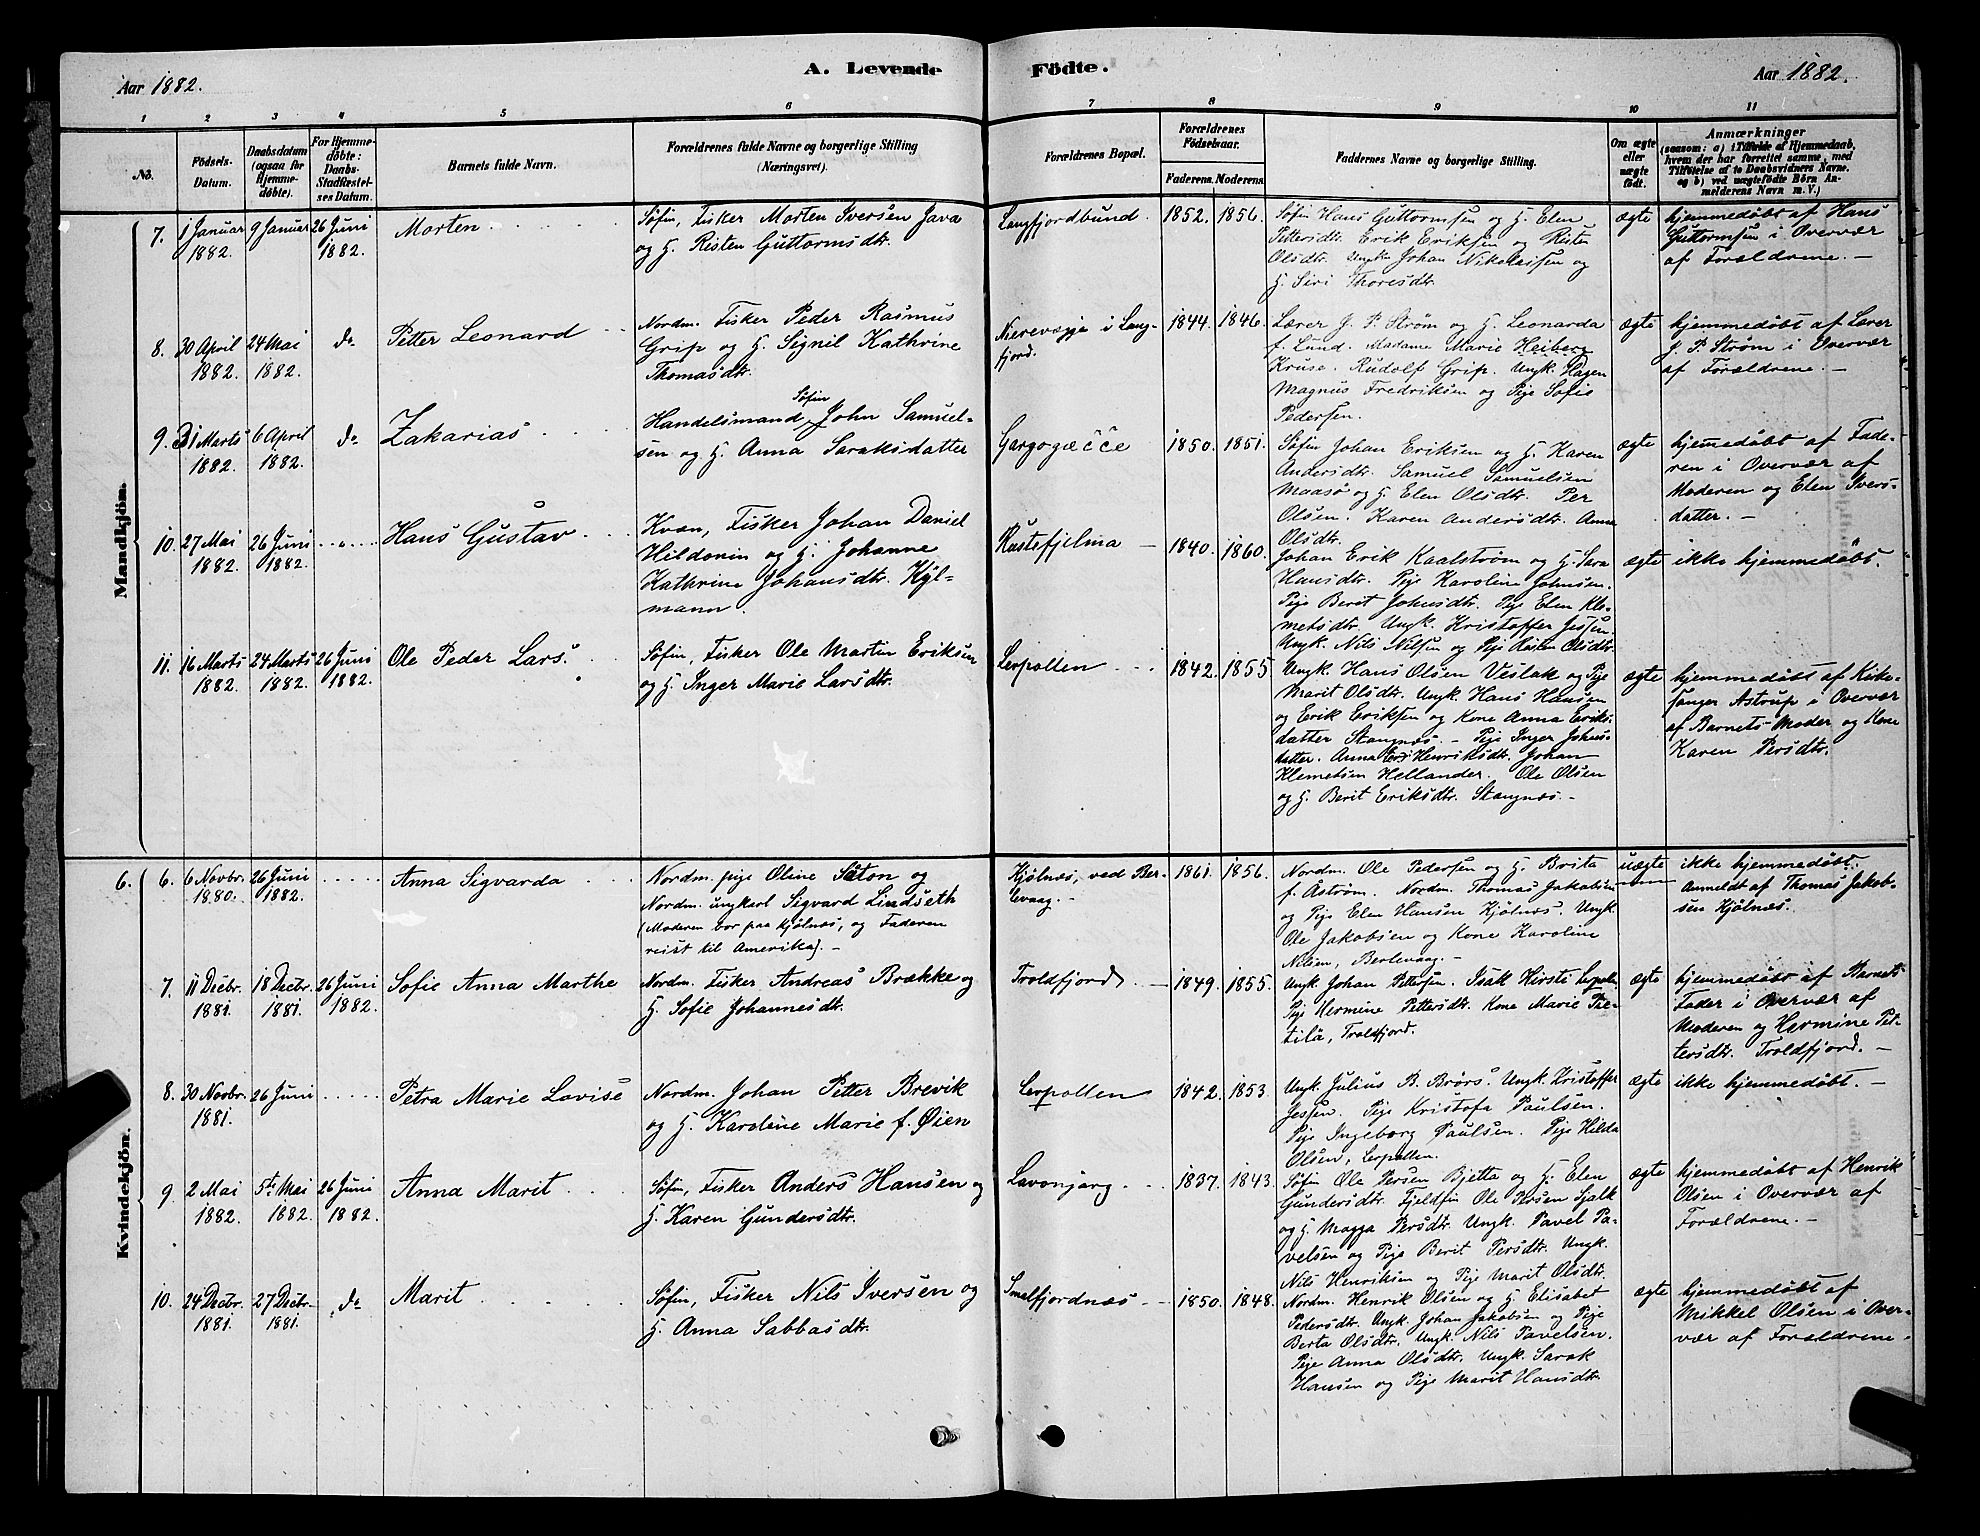 Aar 1882.
A. Levende
Födte.
Aar 1882.
1 2 3 4 5 6 7 8 9 10 11
No.
Födsels-
Datum.
Daabsdatum
(ogsaa for
Hjemme-
döbte).
For Hjemme-
döbte:
Daabs-
Stadfæstel-
ses Datum.
Barnets fulde Navn.
Forældrenes fulde Navne og borgerlige Stilling
(Næringsvei).
Forældrenes Bopæl.
Forældrenes
Födselsaar.
Faderens. Moderens.
Faddernes Navne og borgerlige Stilling.
Om ægte
eller
uægte
födt.
Anmærkninger
(saasom: a) i Tilfælde af Hjemmedaab,
hvem der har forrettet samme, med
Tilföielse af to Daabsvidners Navne.
og b) ved uægtefödte Börn An-
melderens Navn m. V.)
Mandkjön.
7. 1 Januar
1882.
9 Januar
26 Juni
1882.
Morten
Søfin, Fisker Morten Iversen Java
og H. Risten Guttormsdtr.
Langfjordbund.
1852. 1856.
Søfin Hans Guttormsen og H. Elen
Pettersdtr. Erik Eriksen og Risten
Olsdtr. Ungk. Johan Nikolaisen og
H. Siri Thoresdtr.
ægte
hjemmedøbt af Hans
Guttormsen i Overvær
af Forældrene. —
8. 30 April
1882.
24 Mai
1882.
do
Petter Leonard
Nordm. Fisker Peder Rasmus
Grip og H. Signil Kathrine
Thomasdtr.
Nierevæjje i Lang-
fjord.
1844. 1846.
Lærer J. P. Strøm og H. Leonarda
f. Lund. Madame Marie Heiberg
Kruse. Rudolf Grip. Ungk. Hagen
Magnus Fredriksen og Pige Sofie
Pedersen.
ægte
hjemmedøbt af Lærer
J. P. Strøm i Overvær
af Forældrene. —
9. 31 Marts
1882.
6 April
1882.
do
Zakarias
Handelsmand, Søfin John Samuel-
sen og H. Anna Saraksdatter
Gargogæčče
1850. 1851.
Søfin Johan Eriksen og H. Karen
Andersdtr. Samuel Samuelsen
Maasø og H. Elen Olsdtr. Per
Olsen. Karen Andersdtr. Anna
Olsdtr.
ægte
hjemmedøbt af Fade-
ren i Overvær af
Moderen og Elen Ivers-
datter. —
10. 27 Mai
1882.
26 Juni
1882.
Hans Gustav
Kvæn, Fisker Johan Daniel
Hildonin og H. Johanne
Kathrine Johansdtr. Kyl-
mann.
Rustefjelma
1840. 1860.
Johan Erik Kaalstrøm og H. Sara
Hansdtr. Pige Karoline Johnsen.
Pige Berit Johnsdtr. Pige Elen Kle-
metsdtr. Ungk. Kristoffer Jessen
Ungk. Nils Nilsen og Pige Risten Olsdtr.
ægte
ikke hjemmedøbt.
11. 16 Marts
1882.
24 Marts
1882.
26 Juni
1882.
Ole Peder Lars.
Søfin, Fisker Ole Martin Eriksen
og H. Inger Marie Larsdtr.
Lerpollen
1842. 1855
Ungk. Hans Olsen Veslak og Pige
Marit Olsdtr. Ungk. Hans Hansen
og Erik Eriksen og Kone Anna Eriks-
datter Stangnæs. — Pige Inger Johns-
datter. Anna Henriksdtr. Johan
Klemetsen Hellander. Ole Olsen
og H. Berit Eriksdtr. Stangnæs. —
ægte
hjemmedøbt af Kirke-
sanger Astrup i Overvær
af Barnets Moder og Kone
Karen Persdtr.
Kvindekjön.
6. 6. 6 Novbr.
1880.
26 Juni
1882.
Anna Sigvarda
Nordm. pige Oline Säton og
Nordm. ungkarl Sigvard Lindseth
(Moderen bor paa Kjølnæs, og Faderen
reist til Amerika). —
Kjølnæs, ved Ber-
levaag. —
1861. 1856.
Nordm. Ole Pedersen og H. Brita
f. Åström. Nordm. Thomas Jakobsen
og Pige Elen Hansen Kjölnæs. Ungk.
Ole Jakobsen og Kone Karoline
Nilsen, Berlevaag. —
uægte
ikke hjemmedøbt.
Anmeldt af Thomas Jakob-
sen Kjølnæs.
7. 11 Decbr.
1881.
18 Decbr.
1881.
26 Juni
1882.
Sofie Anna Marthe
Nordm. Fisker Andreas Brække og
H. Sofie Johannesdtr.
Troldfjord.
1849. 1855.
Ungk. Johan Pettersen. Isak Hirsti Lerpollen
Pige Hermine Pettersdtr. Kone Marie Pie-
tilä, Troldfjord.
ægte
hjemmedøbt af Barnets
Fader i Overvær af
Moderen og Hermine Pet-
tersdtr. Troldfjord. —
8. 30 Novbr.
1881.
26 Juni
Petra Marie Lovise
Nordm. Johan Petter Brevik
og H. Karoline Marie f. Øien
Lerpollen
1842. 1853.
Ungk. Julius B. Brörs. Ungk. Kristoffer
Jessen. Pige Kristofa Paulsen.
Pige Ingeborg Paulsen. Pige Hilda
Olsen, Lerpollen.
ægte
ikke hjemmedøbt. —
9. 2 Mai
1882.
5te Mai
1882.
26 Juni
1882.
Anna Marit
Søfin, Fisker Anders Hansen og
H. Karen Gundersdtr.
Lavonjarg.
1837. 1843.
Søfin Ole Persen Bjetta og H. Elen
Gundersdtr. Fjeldfin Ole Persen Tjalk
og H. Magga Persdtr. Ungk. Pavel Pa-
velsen og Pige Berit Persdtr. Ungk.
Nils Henriksen og Pige Marit Olsdtr.
ægte
hjemmedøbt af Henrik
Olsen i Overvær af
Forældrene. —
10. 24 Decbr.
1881.
27 Decbr.
1881.
do
Marit
Søfin, Fisker Nils Iversen og
H. Anna Sabbasdtr.
Smalfjordnæs
1850. 1848.
Nordm. Henrik Olsen og H. Elisabet
Pedersdtr. Ungk. Johan Jakobsen og Pige
Berta Olsdtr. Ungk. Nils Pavelsen.
Pige Anna Olsdtr. Ungk. Sarak
Hansen og Pige Marit Hansdtr.
ægte
hjemmedøbt af
Mikkel Olsen i Over-
vær af Forældrene.